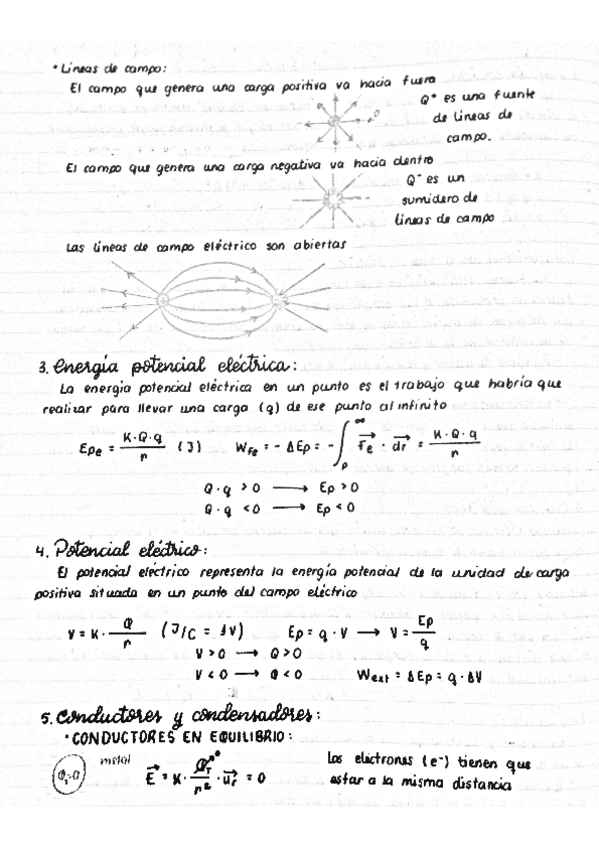 • Líneas de campo:
El campo que genera una carga positiva va hacia fuera
Q⁺ es una fuente
de líneas de
campo.
El campo que genera una carga negativa va hacia dentro
Q⁻ es un
sumidero de
líneas de campo
Las líneas de campo eléctrico son abiertas
3. Energía potencial eléctrica:
La energía potencial eléctrica en un punto es el trabajo que habría que
realizar para llevar una carga (q) de ese punto al infinito
Epe = K·Q·q / r (J) WFe = - ΔEp = - ∫ₚ^∞ Fe · dr = K·Q·q / r
Q·q > 0 → Ep > 0
Q·q < 0 → Ep < 0
4. Potencial eléctrico:
El potencial eléctrico representa la energía potencial de la unidad de carga
positiva situada en un punto del campo eléctrico
V = K · Q / r (J/C = 1V) Ep = q · V → V = Ep / q
V > 0 → Q > 0
V < 0 → Q < 0 Wext = ΔEp = q · ΔV
5. Conductores y condensadores:
• CONDUCTORES EN EQUILIBRIO:
metal
E = K · / r² · ur = 0
Los electrones (e⁻) tienen que
estar a la misma distancia